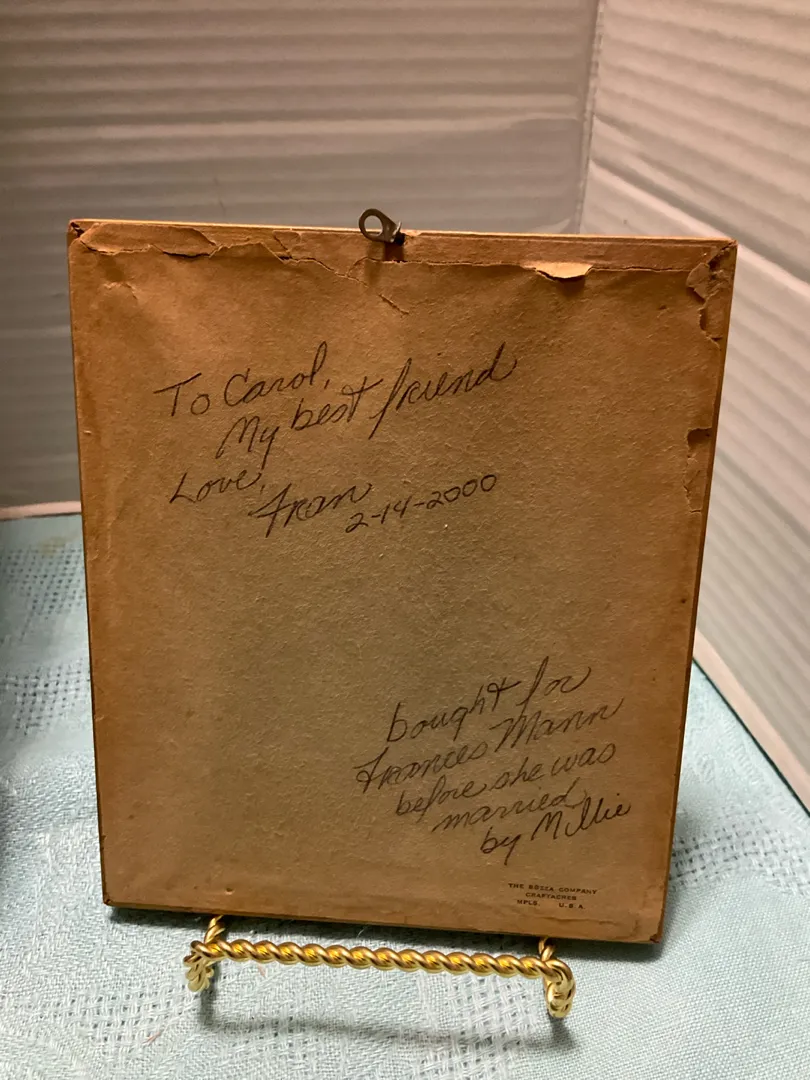 To Carol,
My best friend
Love,
Fran
2-14-2000
bought for
Frances Mann
before she was
married
by Millie
THE BUZZA COMPANY
CRAFTACRES
MPLS. U.S.A